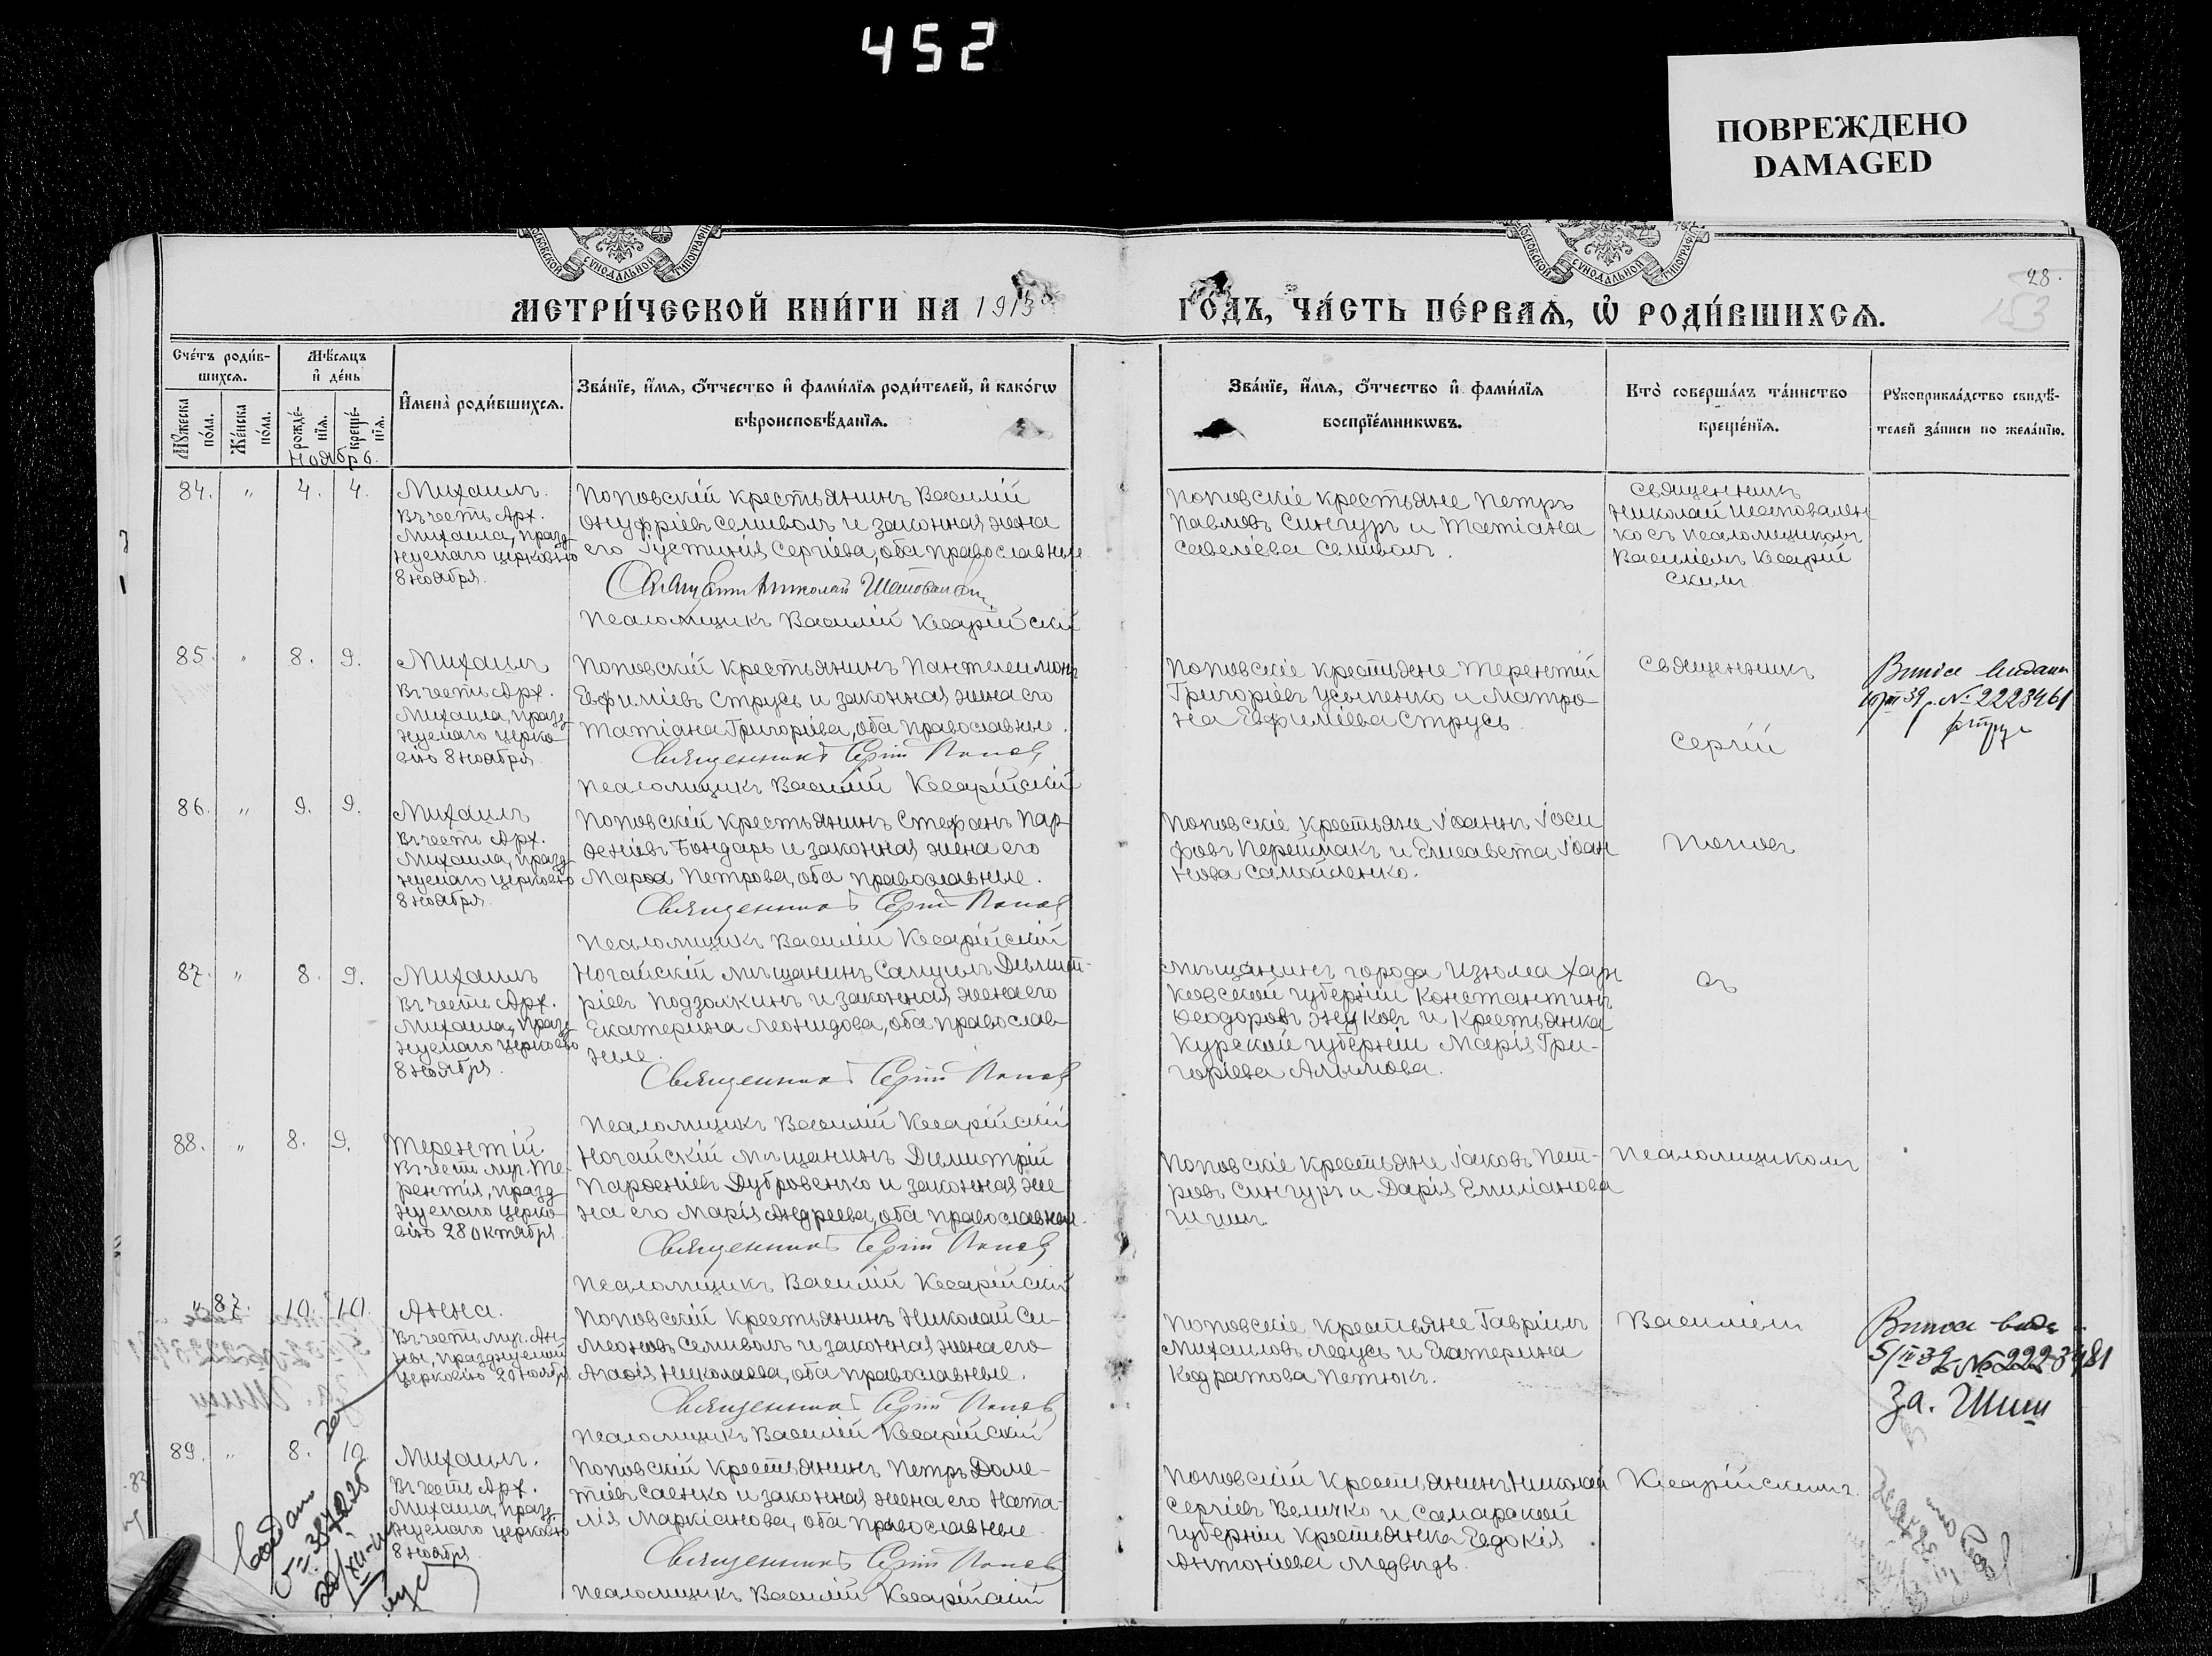 452
ПОВРЕЖДЕНО
DAMAGED
МОСКОВСКОЙ СѴНОДАЛЬНОЙ ТИПОГРАФІИ
МОСКОВСКОЙ СѴНОДАЛЬНОЙ ТИПОГРАФІИ
28.
153
МЕТРИ́ЧЕСКОЙ КНИ́ГИ НА 1913
ГОДЪ, ЧА́СТЬ ПЕ́РВАѦ, Ѡ҆ РОДИ́ВШИХСѦ.
Сче́тъ роди́в-
шихсѧ.
Мѣ́сѧцъ
и҆ де́нь
И҆мена̀ роди́вшихсѧ.
Зва́нїе, и҆́мѧ, ѻ҆́тчество и҆ фами́лїѧ роди́телей, и҆ како́гѡ
вѣроисповѣ́данїѧ.
Мꙋ́жеска
по́ла.
Же́нска
по́ла.
рожде́-
нїѧ.
креще́-
нїѧ.
Ноябрь.
Зва́нїе, и҆́мѧ, ѻ҆́тчество и҆ фами́лїѧ
воспрїе́мникѡвъ.
Кто̀ соверша́лъ та́инство
креще́нїѧ.
Рꙋкоприкла́дство свидѣ́-
телей за́писи по жела́нїю.
84. " 4. 4. Михаилъ.
Въ честь Арх.
Михаила, празд
нуемаго церковію
8 ноября.
Поповскій крестьянинъ Василій
Онуфріевъ Семиволъ и законная жена
его Іустинія Сергіева, оба православные.
Священникъ Николай Шаповален
Псаломщикъ Василій Кесарійскій
Поповскіе крестьяне Петръ
Павловъ Сингуръ и Татіана
Савеліева Семиволъ.
Священникъ
Николай Шаповален
ко съ псаломщикомъ
Василіемъ Кесарій
скимъ.
85. " 8. 9. Михаилъ
Въ честь Арх.
Михаила, празд
нуемаго церко-
вію 8 ноября.
Поповскій крестьянинъ Пантелеимонъ
Евфиміевъ Струсь и законная жена его
Татіана Григоріева, оба православные.
Священникъ Сергій Поповъ
Псаломщикъ Василій Кесарійскій
Поповскіе крестьяне Терентій
Григоріевъ Усыпенко и Матро-
на Евфиміева Струсь.
Священникъ
Сергій
39 г. № 2223461
86. " 9. 9. Михаилъ
Въ честь Арх.
Михаила, празд
нуемаго церковію
8 ноября.
Поповскій крестьянинъ Стефанъ Пар-
ѳеніевъ Бондарь и законная жена его
Марѳа Петрова, оба православные.
Священникъ Сергій Поповъ
Псаломщикъ Василій Кесарійскій
Поповскіе крестьяне Іоаннъ Іоси
фовъ Переймакъ и Елисавета Іоан
нова Самойленко.
Поповъ
87. " 8. 9. Михаилъ
Въ честь Арх.
Михаила, празд
нуемаго церковію
8 ноября.
Ногайскій мѣщанинъ Самуилъ Димит-
ріевъ Подзолкинъ и законная жена его
Екатерина Леонидова, оба православ-
ные.
Священникъ Сергій Поповъ
Псаломщикъ Василій Кесарійскій
Мѣщанинъ города Изюма Харь
ковской губерніи Константинъ
Ѳеодоровъ Жуковъ и крестьянка
Курской губерніи Марія Гри-
горіева Алымова.
съ
88. " 8. 9. Терентій.
Въ честь муч. Те-
рентія, празд
нуемаго церко-
вію 28 октября.
Ногайскій мѣщанинъ Димитрій
Парѳеніевъ Дубровенко и законная же
на его Марія Андреева, оба православные.
Священникъ Сергій Поповъ
Псаломщикъ Василій Кесарійскій
Поповскіе крестьяне Іаковъ Пет-
ровъ Сингуръ и Дарія Емиліанова
Шишъ.
Псаломщикомъ
" 87. 10. 10. Анна.
Въ честь муч. Ан-
ны, празднуемой
церковію 20 ноября
Поповскій крестьянинъ Николай Си-
меоновъ Семиволъ и законная жена его
Агаѳія Николаева, оба православные.
Священникъ Сергій Поповъ
Псаломщикъ Василій Кесарійскій
Поповскіе крестьяне Гавріилъ
Михаиловъ Ледусь и Екатерина
Кодратова Петюкъ.
Василіемъ
№ 2223481
За. Шиш
89. " 8. 10 Михаилъ.
Въ честь Арх.
Михаила, празд
нуемаго церковію
8 ноября.
Поповскій крестьянинъ Петръ Доме-
тіевъ Саенко и законная жена его Ната-
лія Маркіанова, оба православные.
Священникъ Сергій Поповъ
Псаломщикъ Василій Кесарійскій
Поповскій крестьянинъ Николай
Сергіевъ Величко и Самарской
губерніи крестьянка Евдокія
Антоніева Медвѣдь.
Кесарійскимъ.